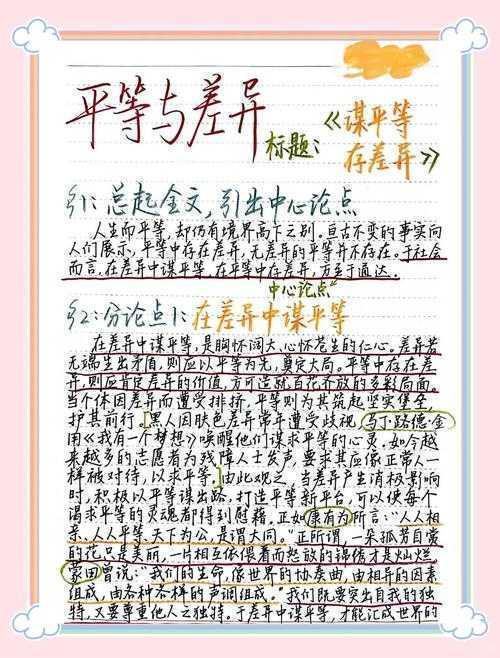 平等与差异
标题：《谋平等
存差异》
§1：总起全文，引出中心论点
人生而平等，却仍有境界高下之别。亘古不变的事实向
人们展示，平等中存在差异，无差异的平等并不存在。于社会
而言，在差异中谋平等，在平等中存差异，方至于通达。
中心论点
§2：分论点1：在差异中谋平等
在差异中谋平等，是胸怀阔大、心怀苍生的仁心。差异若
无端生出矛盾，则应以平等为先，奠定大局。平等中存在差
异，则应肯定差异的价值，方可造就百花齐放的多彩局面。
当个体因差异而遭受排挤，平等则为其筑起坚实堡垒，
护其前行。黑人因肤色差异常年遭受歧视，马丁·路德·金
用《我有一个梦想》唤醒他们谋求平等的心灵。如今越
来越多的志愿者为残障人士发声，要求其应像正常人一
样被对待，以求平等。由此观之，当差异产生消极影响
时，积极以平等谋出路，打造平等新平台，可以使每个
渴求平等的灵魂都得到慰藉。正如康有为所言："人人相
亲，人人平等，天下为公，是谓大同。"正所谓，一朵孤芳自赏
的花只是美丽，一片相互依偎着而怒放的锦绣才是灿烂
蒙田曾说："我们的生命，像世界的协奏曲，由相异的因素
组成，由各种各样的声调组成。"我们既要突出自我的独
特，又要尊重他人之独特。于差异中谋平等，才能汇成世界的